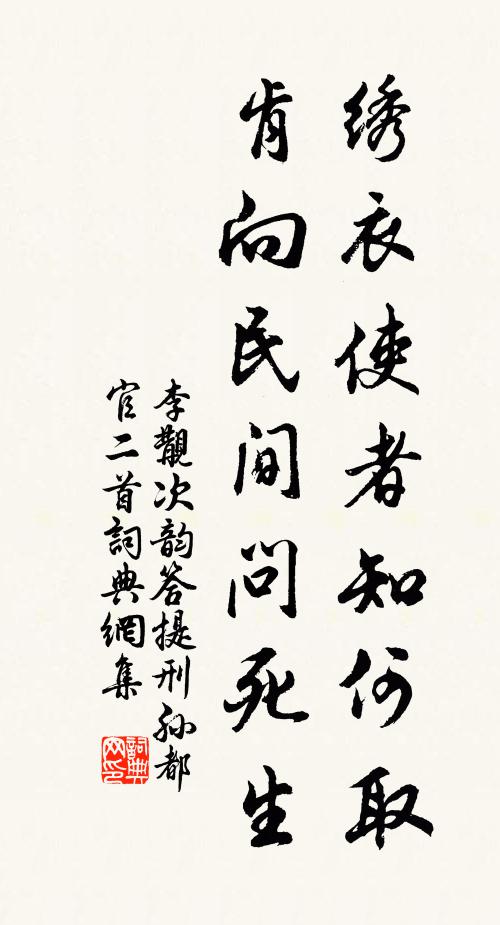 绣衣使者知何取
肯向民间问死生
李觏次韵答提刑孙都
官二首詞典網集
詞典
网印